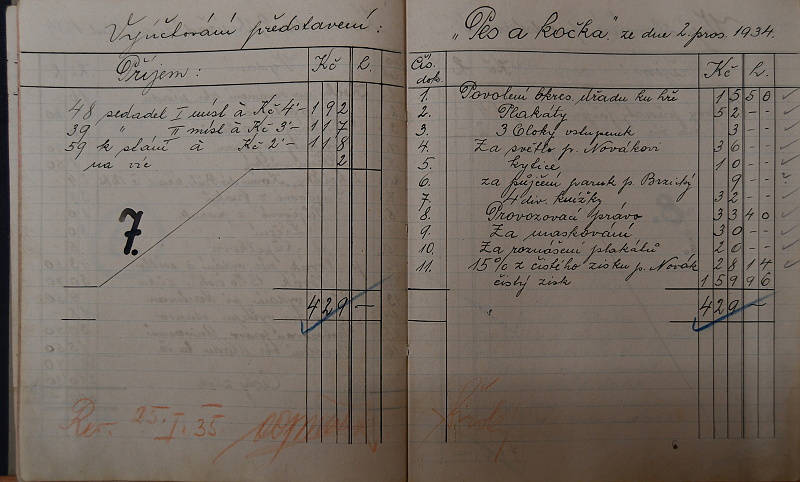 Vyúčtování představení:
Příjem: Kč h.
48 sedadel I míst à Kč 4·– 192
39 " II míst à Kč 3·– 117
59 k stání à Kč 2·– 118
na víc 2
7.
429 –
Rev. 25. I. 35
„Pes a kočka" ze dne 2. pros. 1934.
Čís. dok. Kč h.
1. Povolení okres. úřadu ku hře 15 50
2. Plakáty 52 --
3. 3 bloky vstupenek 3 --
4. Za světlo p. Novákovi 36 --
5. kytice 10 --
6. za půjčení paruk p. 9 --
7. 4 div. knížky 32 --
8. Provozovací právo 33 40
9. Za maskování 30 --
10. Za roznášení plakátů 20 --
11. 15% z čistého zisku p. Novák 28 14
čistý zisk 159 96
429 –